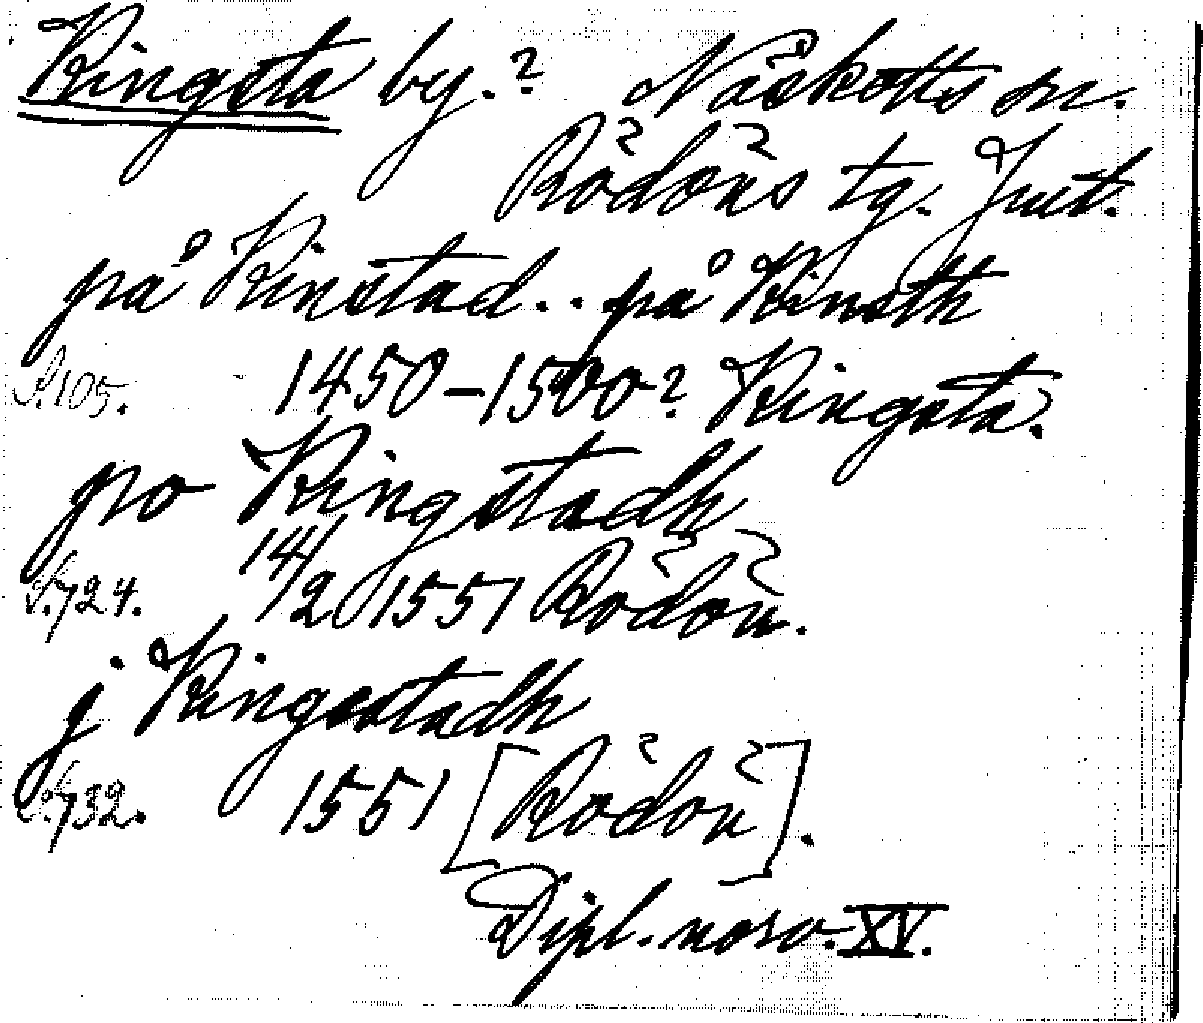 Kingsta by.? Näskotts sn.
Rödöns tg. Jmt.
på Kinstad.. på Kinsth
S. 105. 1450–1500? Kingsta.
po Kingstadh
S. 724. 14/2 1551 Rödön.
j Kingestadh
S. 732. 1551 [Rödön].
Dipl. norv. XV.